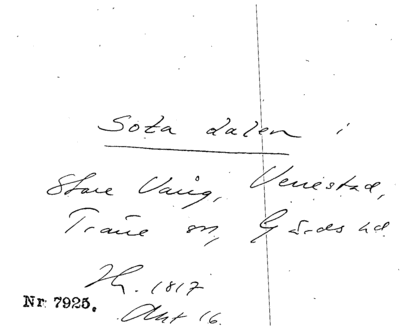 Sota dalen i
Store Vång, Venestad,
Träne sn, Gärds hd
1817
Nr 7925. Akt 16.